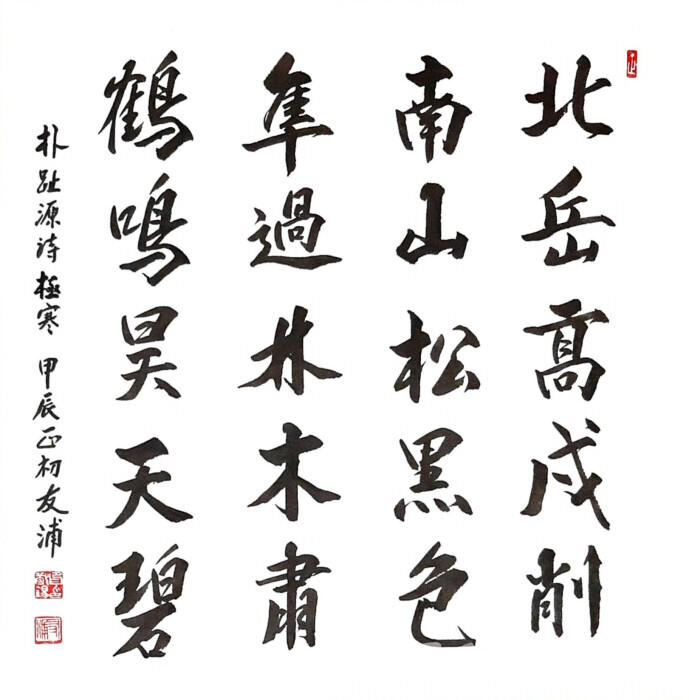 北岳高戌削
南山松黑色
隼過林木肅
鶴鳴昊天碧
朴趾源詩極寒 甲辰正初友浦